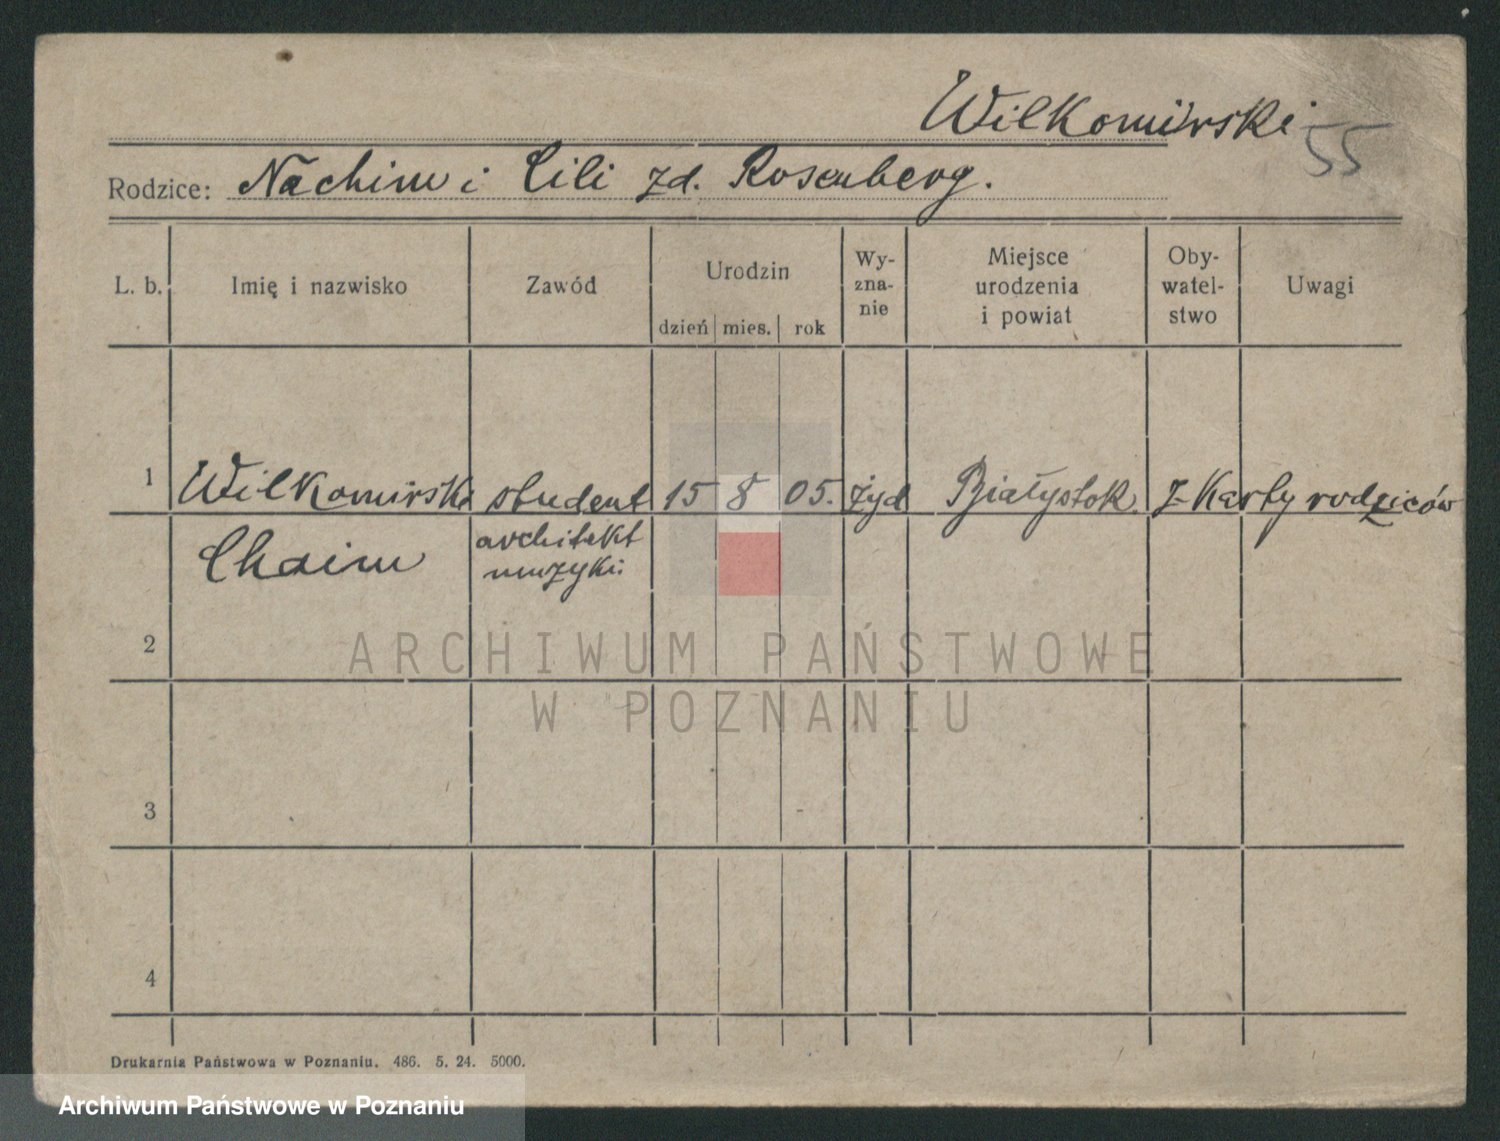 Wilkomirski
55
Rodzice: Nachim i Cili zd. Rosenberg.
L. b. Imię i nazwisko Zawód Urodzin dzień mies. rok Wy-zna-nie Miejsce urodzenia i powiat Oby-watel-stwo Uwagi
1 Wilkomirski student 15 8 05. żyd Białystok z Karty rodziców
Chaim architekt
muzyki
2
3
4
ARCHIWUM PAŃSTWOWE
W POZNANIU
Drukarnia Państwowa w Poznaniu. 486. 5. 24. 5000.
Archiwum Państwowe w Poznaniu